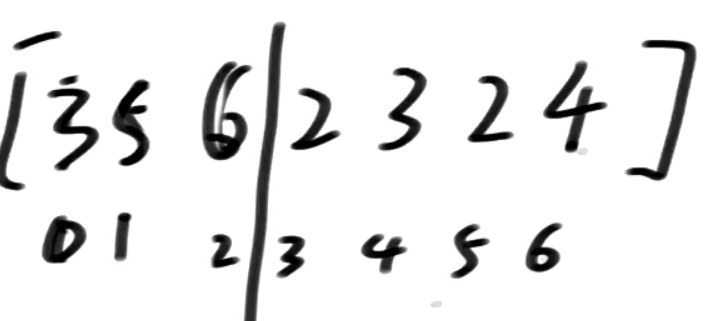 [3 5 6 | 2 3 2 4]
0 1 2 3 4 5 6